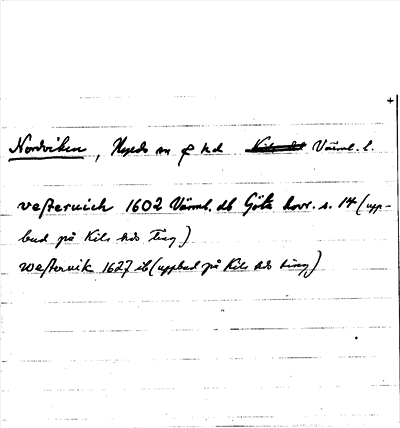 +
Nordviken, Väse hd Värml. l.
vesterwich 1602 Värml. db Göta hovr. s. 14 (upp-
bud på Kils hds Ting)
westervik 1627 ib (uppbud på Kils hds ting)